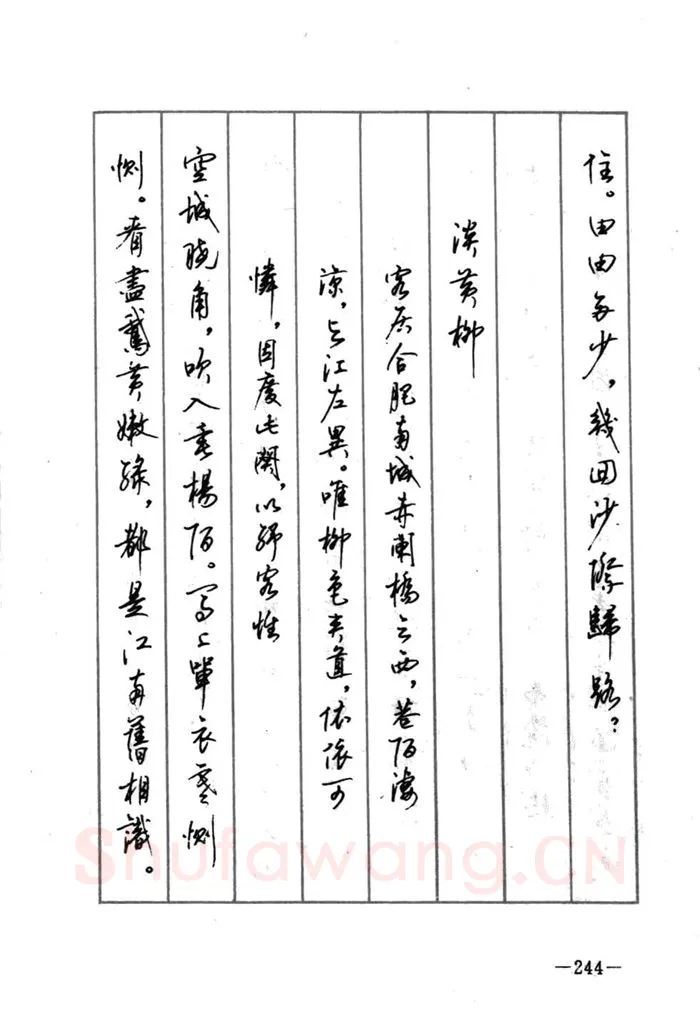 住。田田多少，幾回沙際歸路？
淡黃柳
客居合肥南城赤闌橋之西，巷陌淒
涼，与江左異。唯柳色夾道，依依可
憐，因度此闋，以紓客懷
空城曉角，吹入垂楊陌。馬上單衣寒惻
惻。看盡鵝黃嫩綠，都是江南舊相識。
Shufawang.CN
—244—